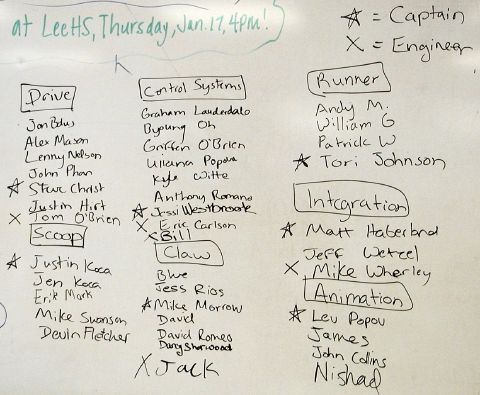 at Lee HS, Thursday, Jan. 17, 4pm!
☆ = Captain
X = Engineer
Drive
Alex Mason
Lenny Nelson
John Phan
☆ Steve Christ
Justin Hirt
X Tom O'Brien
Scoop
☆ Justin Koca
Jen Koca
Erik Mark
Mike Swanson
Devin Fletcher
Control Systems
Graham Lauderdale
Byoung Oh
Griffen O'Brien
Uliana Popova
Kyle Witte
Anthony Romano
☆ Jessi Westbrook
X Eric Carlson
X Bill
Claw
Blue
Jess Rios
☆ Mike Morrow
David
David Romeo
Darcy Sherwood
X Jack
Runner
Andy M.
William G
Patrick W
☆ Tori Johnson
Integration
☆ Matt Haberland
Jeff Wetzel
X Mike Wherley
Animation
☆ Lev Popov
James
John Collins
Nishad